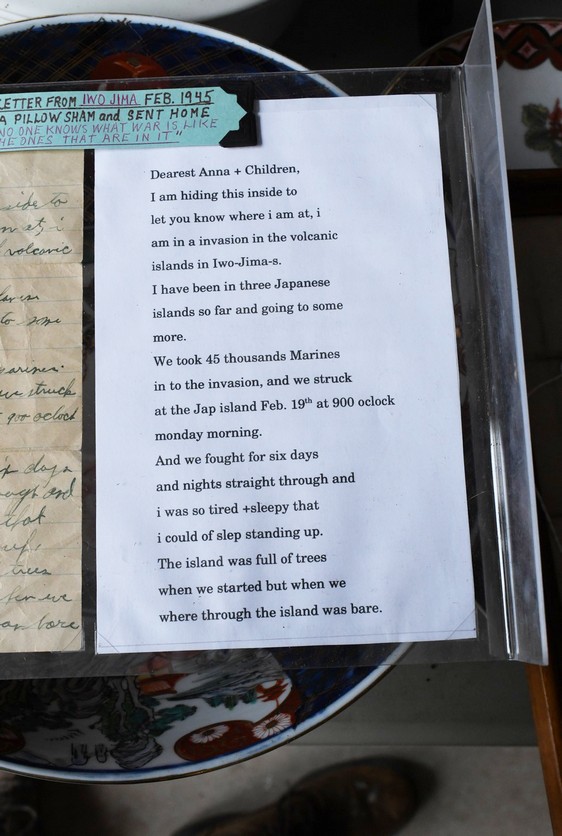 LETTER FROM IWO JIMA FEB. 1945
A PILLOW SHAM and SENT HOME
NO ONE KNOWS WHAT WAR IS LIKE
THE ONES THAT ARE IN IT"
Dearest Anna + Children,
I am hiding this inside to
let you know where i am at, i
am in a invasion in the volcanic
islands in Iwo-Jima-s.
I have been in three Japanese
islands so far and going to some
more.
We took 45 thousands Marines
in to the invasion, and we struck
at the Jap island Feb. 19th at 900 oclock
monday morning.
And we fought for six days
and nights straight through and
i was so tired +sleepy that
i could of slep standing up.
The island was full of trees
when we started but when we
where through the island was bare.
ide to
at, i
volcanic
to some
marines.
we struck
900 oclock
days
and
that
up.
trees
when we
bare